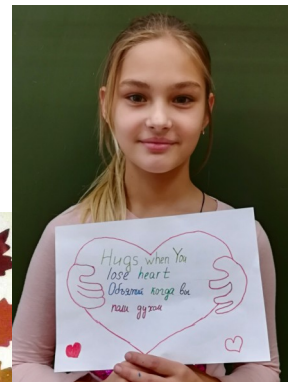 Hugs when You
lose heart
Объятия когда вы
пали духом